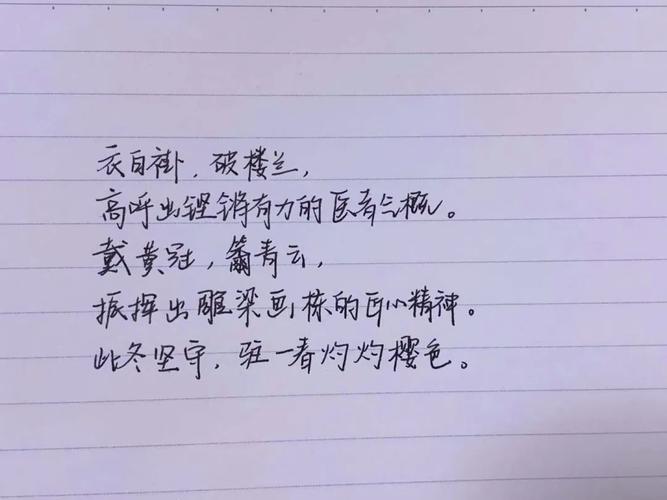 衣白褂，破楼兰，
高呼出铿锵有力的医者气概。
戴黄冠，簪青云，
振挥出雕梁画栋的匠心精神。
此冬坚守，驻一春灼灼樱色。